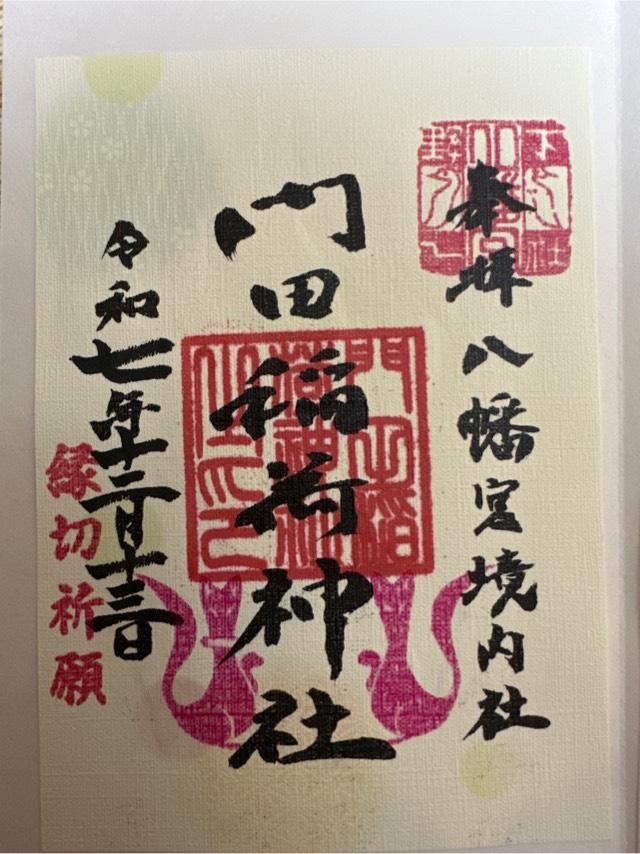 奉拝 八幡宮境内社
門田稲荷神社
門田稲荷神社之印
令和七年十二月十三日
縁切祈願